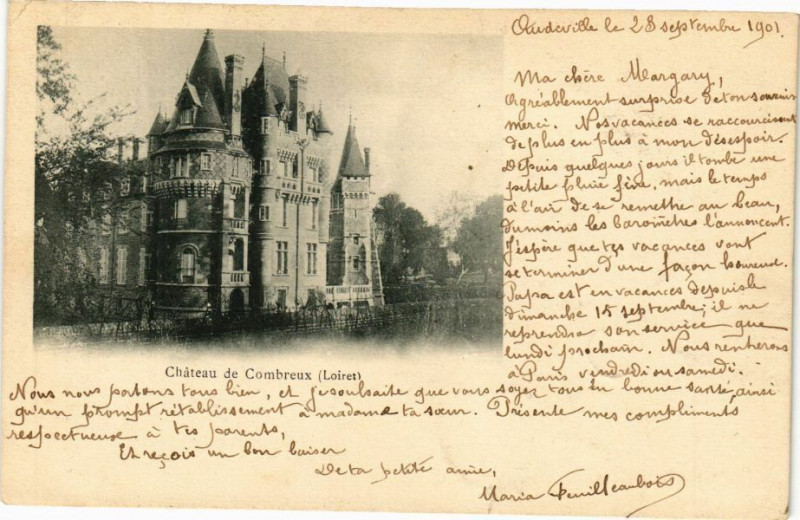 Oudeville le 23 septembre 1901.
Ma chère Margary,
Agréablement surprise de ton souvenir
merci. Nos vacances se raccourcissent
de plus en plus à mon désespoir.
Depuis quelques jours il tombe une
petite pluie fine, mais le temps
a l'air de se remettre au beau,
du moins les baromètres l'annoncent.
J'espère que tes vacances vont
se terminer d'une façon heureuse.
Papa est en vacances depuis le
dimanche 15 septembre; il ne
reprendra son service que
lundi prochain. Nous rentrerons
à Paris vendredi ou samedi.
Château de Combreux (Loiret)
Nous nous portons tous bien, et je souhaite que vous soyez tous en bonne santé, ainsi
qu'un prompt rétablissement à madame ta sœur. Présente mes compliments
respectueux à tes parents,
Et reçois un bon baiser
De ta petite amie,
Maria Feuilleaubois